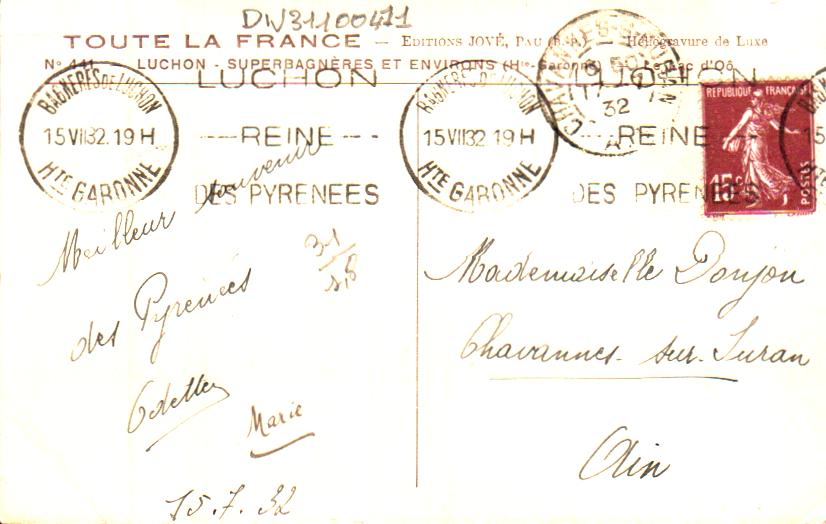 DW31100411
TOUTE LA FRANCE — EDITIONS JOVÉ, PAU (B.-P.) — Héliogravure de Luxe
N° 441 LUCHON - SUPERBAGNÈRES ET ENVIRONS (Hte-Garonne) Le Lac d'Oô
LUCHON
REINE
DES PYRENEES
BAGNÈRES DE LUCHON
15 VII 32. 19 H
HTE GARONNE
BAGNÈRES DE LUCHON
15 VII 32 19 H
HTE GARONNE
LUCHON
REINE
DES PYRENEES
CHAVANNES-S-SURAN
17 -7
32
AIN
REPUBLIQUE FRANÇAISE
15c
POSTES
15
Meilleur souvenir
des Pyrenées
Odette
Marie
15.7.32
31
Mademoiselle Donjon
Chavannes-sur-Suran
Ain